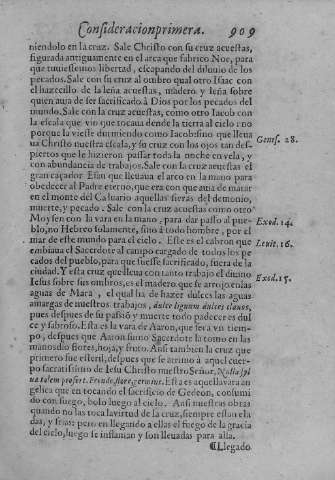 Consideracion primera. 909
niendolo en la cruz. Sale Christo con su cruz acuestas,
figurada antiguamente en el arca que fabrico Noe, para
que tuuiessemos libertad, escapando del diluuio de los
pecados. Sale con su cruz al ombro qual otro Isaac con
el hazezillo de la leña acuestas, madero y leña sobre
quien auia de ser sacrificado à Dios por los pecados del
mundo. Sale con la cruz acuestas, como otro Iacob con
la escala que vio que tocaua dende la tierra al cielo: no
porque la viesse durmiendo como Iacob sino que lleua
ua Christo nuestra escala, y su cruz con los ojos tan des-
piertos que le hizieron passar toda la noche en vela, y
con abundancia de trabajos. Sale con la cruz acuestas el
gran caçador Esau que lleuaua el arco en la mano para
obedecer al Padre eterno, que era con que auia de matar
en el monte del Caluario aquellas fieras del demonio,
muerte, y pecado. Sale con la cruz acuestas como otro
Moysen con la vara en la mano, para dar passo al pue-
blo, no Hebreo solamente, sino à todo hombre, por el
mar de este mundo para el cielo. Este es el cabron que
embiaua el Sacerdote al campo cargado de todos los pe
cados del pueblo, para que fuesse sacrificado, fuera de la
ciudad. Y esta cruz que lleua con tanto trabajo el diuino
Iesus sobre sus ombros, es el madero que se arrojo en las
aguas de Mara, el qual ha de hazer dulces las aguas
amargas de nuestros trabajos, dulce lignum dulces clauos,
pues despues de su passiõ y muerte todo padecer es dul
ce y sabroso. Esta es la vara de Aaron, que sera vn tiem-
po, despues que Aaron sumo Sacerdote la tomo en las
manos dio flores, hoja, y fruto. Ansi tambien la cruz que
primero fue esteril, despues que se arrimo à aquel cuer-
po sacratissimo de Iesu Christo nuestro Señor, Nulla syl
ua talem profert. Fronde, flore, germine. Esta es aquella vara an
gelica que en tocando el sacrificio de Gedeon, consumi
do con fuego, bolo luego al cielo. Ansi nuestras obras
quando no las toca la virtud de la cruz, siempre estan ela
das, y frias: pero en llegando a ellas el fuego de la gracia
del cielo, luego se inflaman y son lleuadas para alla.
¶Llegado
Genes. 28.
Exod. 14.
Leuit. 16.
Exod. 15.